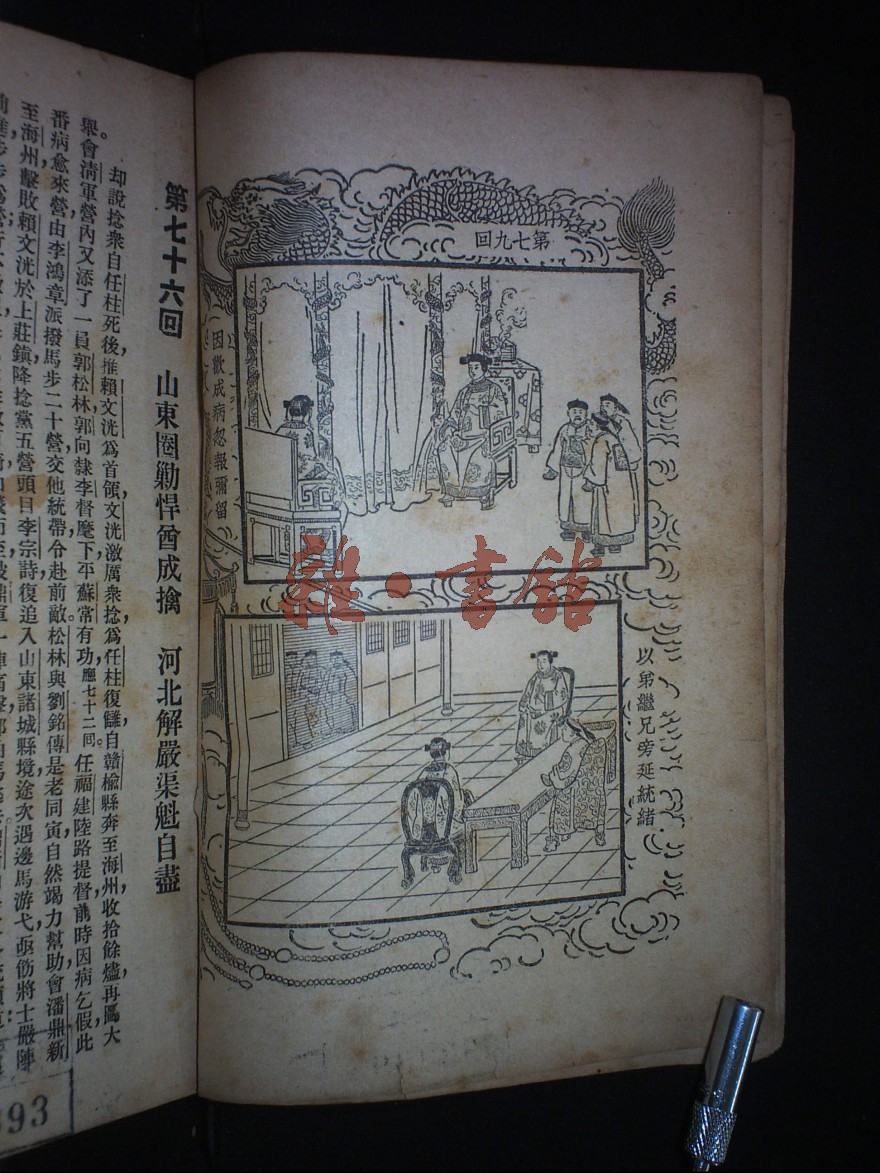 第七九回
因歡成病忽報彌留
以弟繼兄旁延統緒
雜·書館
第七十六回　山東圈勦悍酋成擒　河北解嚴渠魁自盡
却說捻衆自任柱死後，推賴文洸爲首領，文洸激厲衆捻，爲任柱復讎，自贛榆縣奔至海州，收拾餘燼，再圖大
舉。會淸軍營內，又添了一員郭松林，郭向隸李督麾下，平蘇常有功，應七十二回。任福建陸路提督，前時因病乞假，此
番病愈來營，由李鴻章派撥馬步二十營，交他統帶，令赴前敵。松林與劉銘傳是老同寅，自然竭力幫助，會潘鼎新
至海州，擊敗賴文洸於上莊鎮，降捻黨五營頭目李宗詩，復追入山東諸城縣境，途次遇邊馬游弋，亟飭將士嚴陣
893